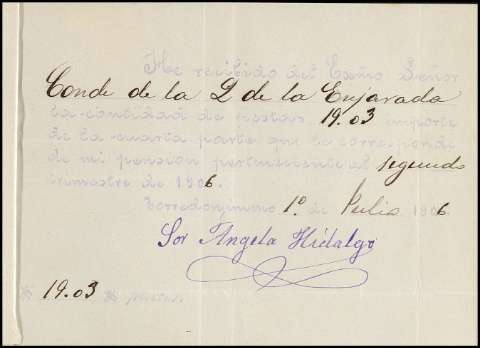 He recibido del Exmo Señor
Conde de la Q de la Enjarada
la cantidad de pesetas 19.03 importe
de la cuarta parte que le corresponde
de mi pensión perteneciente al segundo
trimestre de 1906.
Torredonjimeno 1º de Julio 1906.
Sor Angela Hidalgo
19.03 pesetas.